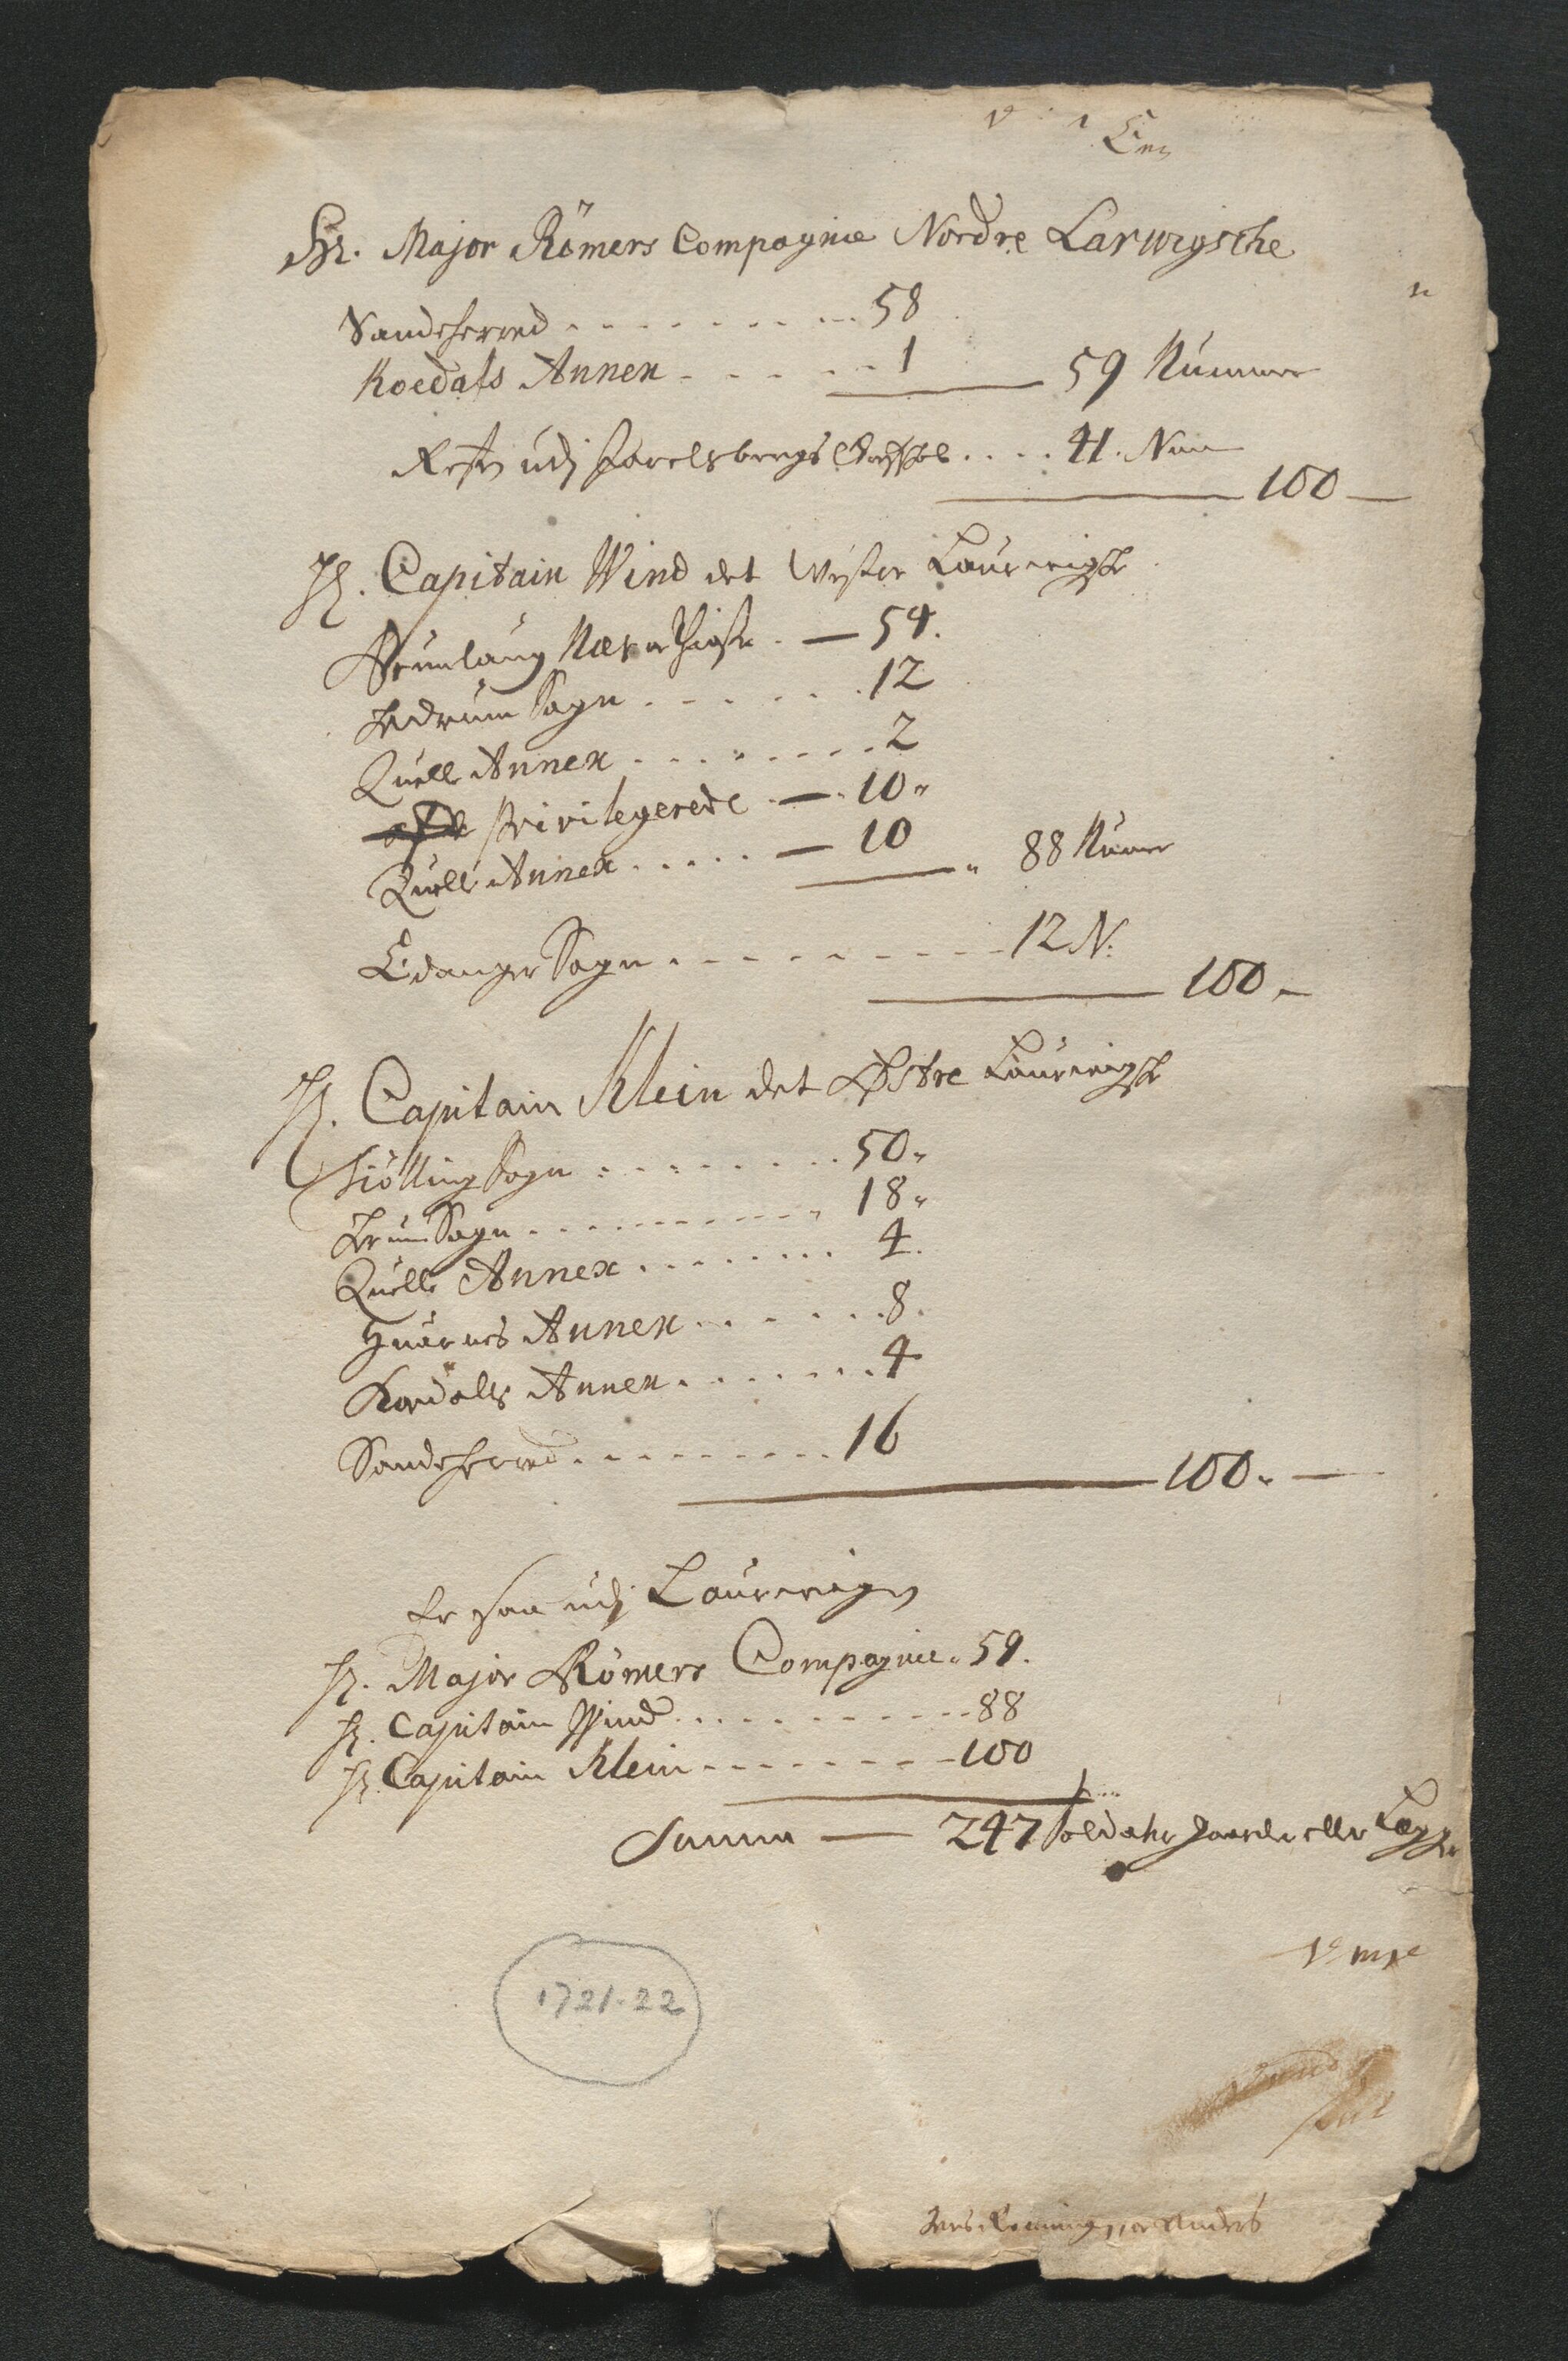 Hr. Major Römers Compagnie Nordre Larwigsche
Sandeherred - - - - - - - - 58
Koedals Annex - - - - - - 1
59 Nummer
Resten udj Jarelsbergs Grefskab . . . . 41. Num
100 —
Hr. Capitain Wind det Wester Laurvigske
Brunlaug Næs — 54.
Hedrum Sogn . - - - - - . 12
Quelle Annex . . . . - - - - 2
privilegerede — 10 "
Quelle Annex . . . . . — 10
88 Numer
Eidanger Sogn . - - - - - - - 12 N:
100 —
Hr. Capitain Klein det Østre Laurvigske
Tiølling Sogn . - - - - - - . 50 "
Hedrum Sogn - - - - - - - - 18 "
Quelle Annex . . . . . . . . 4.
Hvarnes Annex . . . . . . . 8.
Kordals Annex . . . . . . . 4
Sandeherred . - - - - - - - . 16
100 . —
Er saa udj Laurvigen
Hr. Major Römers Compagnie . 59.
Hr. Capitain Wind . . . . - - - - - 88
Hr. Capitain Klein - - - - - - - 100
Summa — 247 Soldater Gaarder eller Legger
1721-22